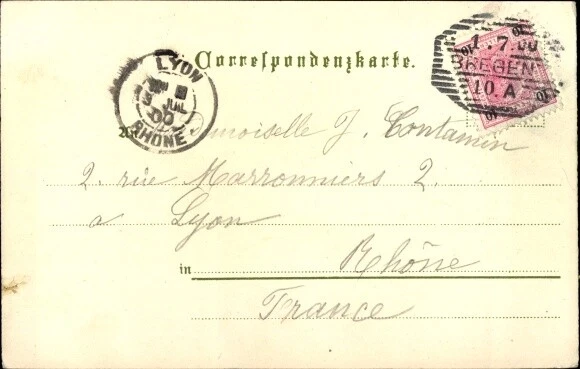 Correspondenzkarte.
LYON
JUIL
00
RHONE
1.7.00
BREGEN
10.A
10
10
10
Mademoiselle J. Contamin
2. rue Marronniers 2.
a Lyon
in Rhône
France